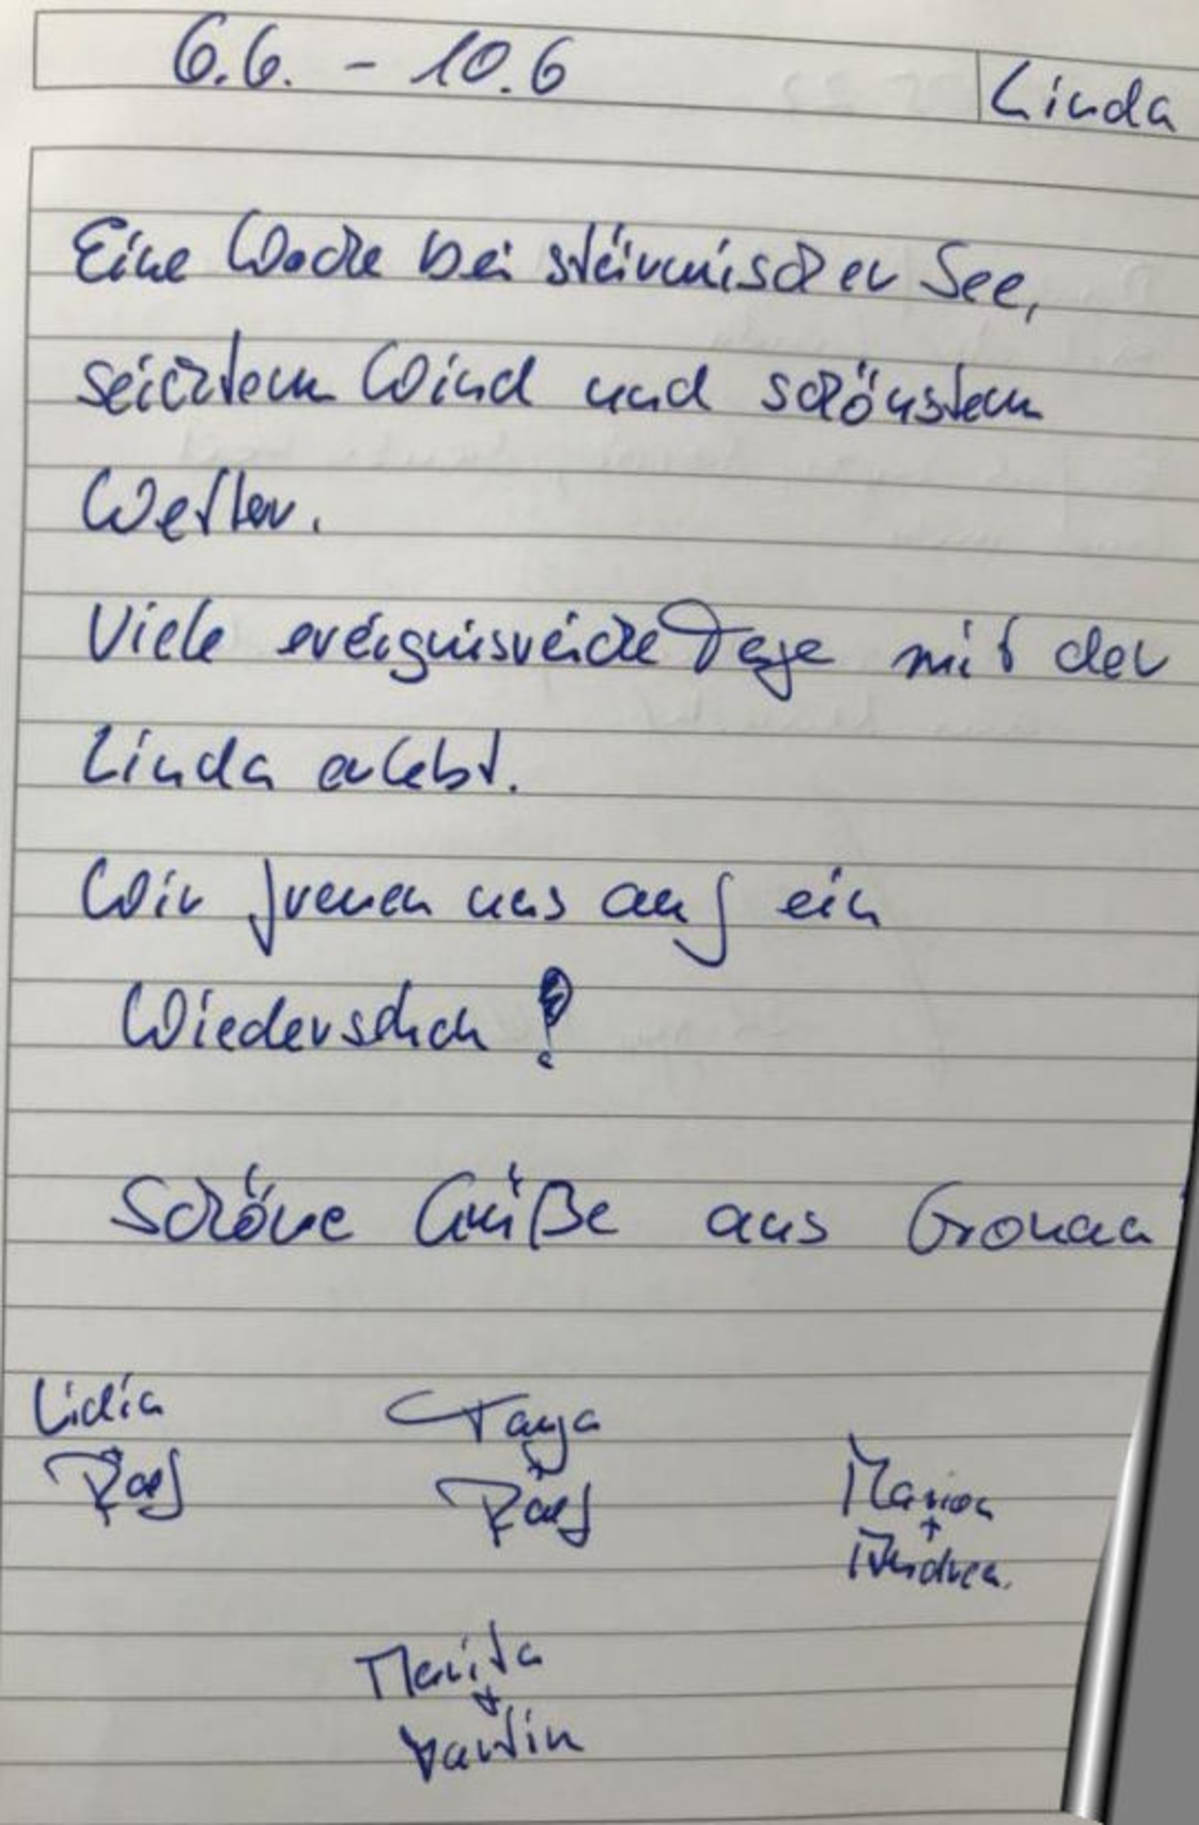 6.6. - 10.6
Linda
Eine Woche bei stürmischer See,
seichtem Wind und schönstem
Wetter.
Viele ereignisreiche Tage mit der
Linda erlebt.
Wir freuen uns auf ein
Wiedersehen!
Schöne Grüße aus Gronau
Lidia
Tanja
+
Ralf
Marion
+
Andrea.
Marita
+